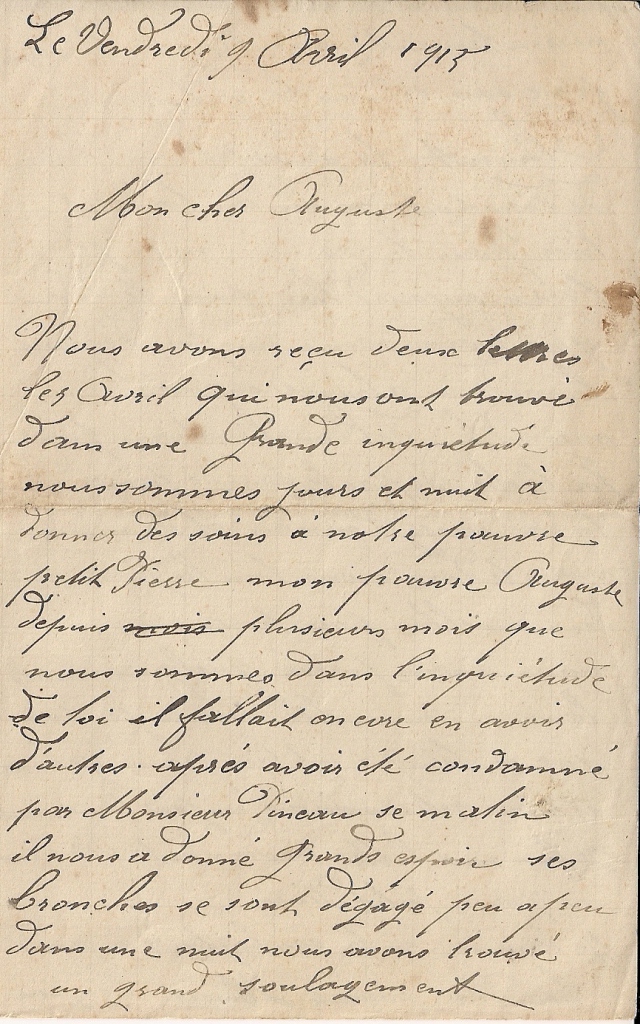 Le Vendredi 9 Avril 1915
Mon cher Auguste
Nous avons reçu deux lettres
les Avril qui nous ont trouvé
dans une Grande inquiétude
nous sommes jours et nuit à
donner des soins à notre pauvre
petit Pierre mon pauvre Auguste
depuis mois plusieurs mois que
nous sommes dans l'inquiétude
de toi il fallait encore en avoir
d'autres. aprés avoir été condamné
par Monsieur Pineau se matin
il nous a donné Grands espoir ses
bronches se sont dégagé peu a peu
dans une nuit nous avons trouvé
un grand soulagement